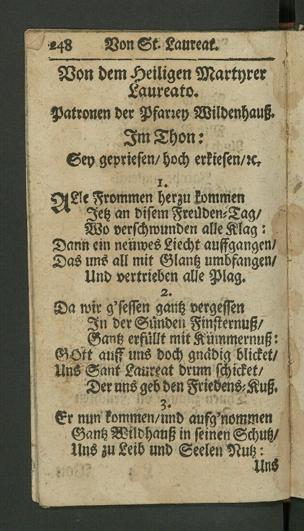 248 Von St. Laureat.
Von dem Heiligen Martyrer
Laureato.
Patronen der Pfarrey Wildenhauß.
Im Thon:
Sey gepriesen/ hoch erkiesen/ ꝛc.
1.
ALle Frommen herzu kommen
Jetz an disem Freüden-Tag/
Wo verschwunden alle Klag:
Dann ein neüwes Liecht auffgangen/
Das uns all mit Glantz umbfangen/
Und vertrieben alle Plag.
2.
Da wir g'sessen gantz vergessen
In der Sünden Finsternuß/
Gantz erfüllt mit Kümmernuß:
GOtt auff uns doch gnädig blicket/
Uns Sant Laureat drum schicket/
Der uns geb den Friedens-Kuß.
3.
Er nun kommen/ und aufg'nommen
Gantz Wildhauß in seinen Schutz/
Uns zu Leib und Seelen Nutz:
Uns